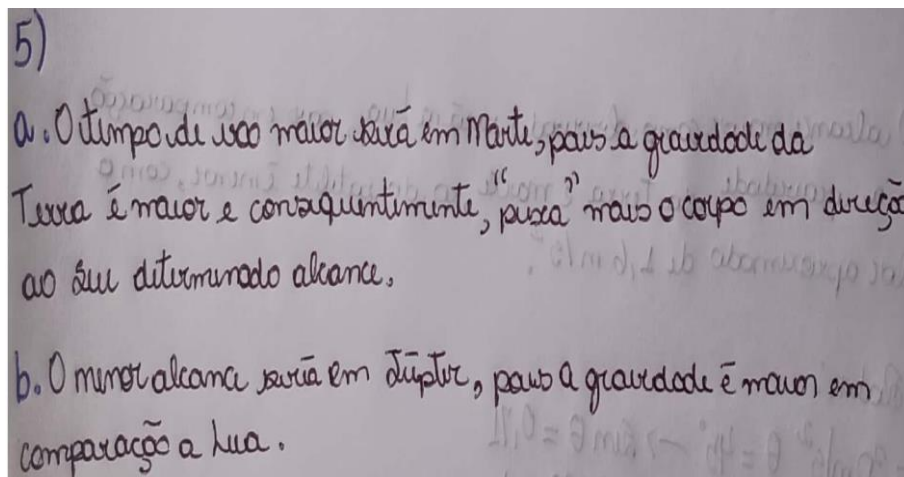 5)
a. O tempo de voo maior será em Marte, pois a gravidade da
Terra é maior e consequentemente, "puxa" mais o corpo em direção
ao seu determinado alcance.
b. O menor alcance seria em Júpter, pois a gravidade é maior em
comparação a Lua.